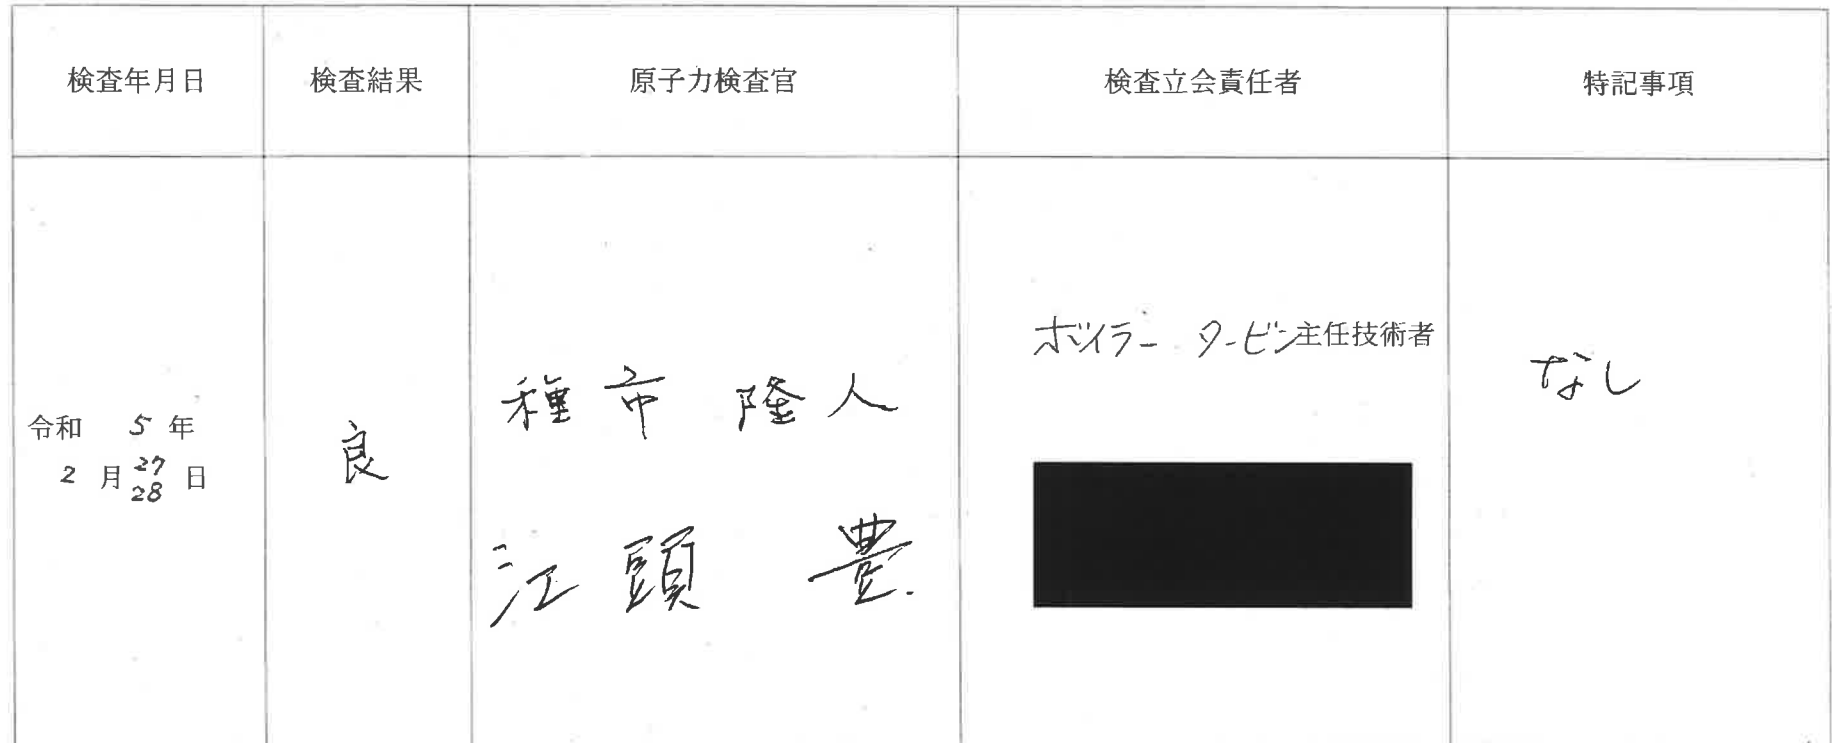 検査年月日
検査結果
原子力検査官
検査立会責任者
特記事項
令和 5 年
2 月 27 日
28
良
種市 隆人
江頭 豊
ボイラー タービン主任技術者
なし